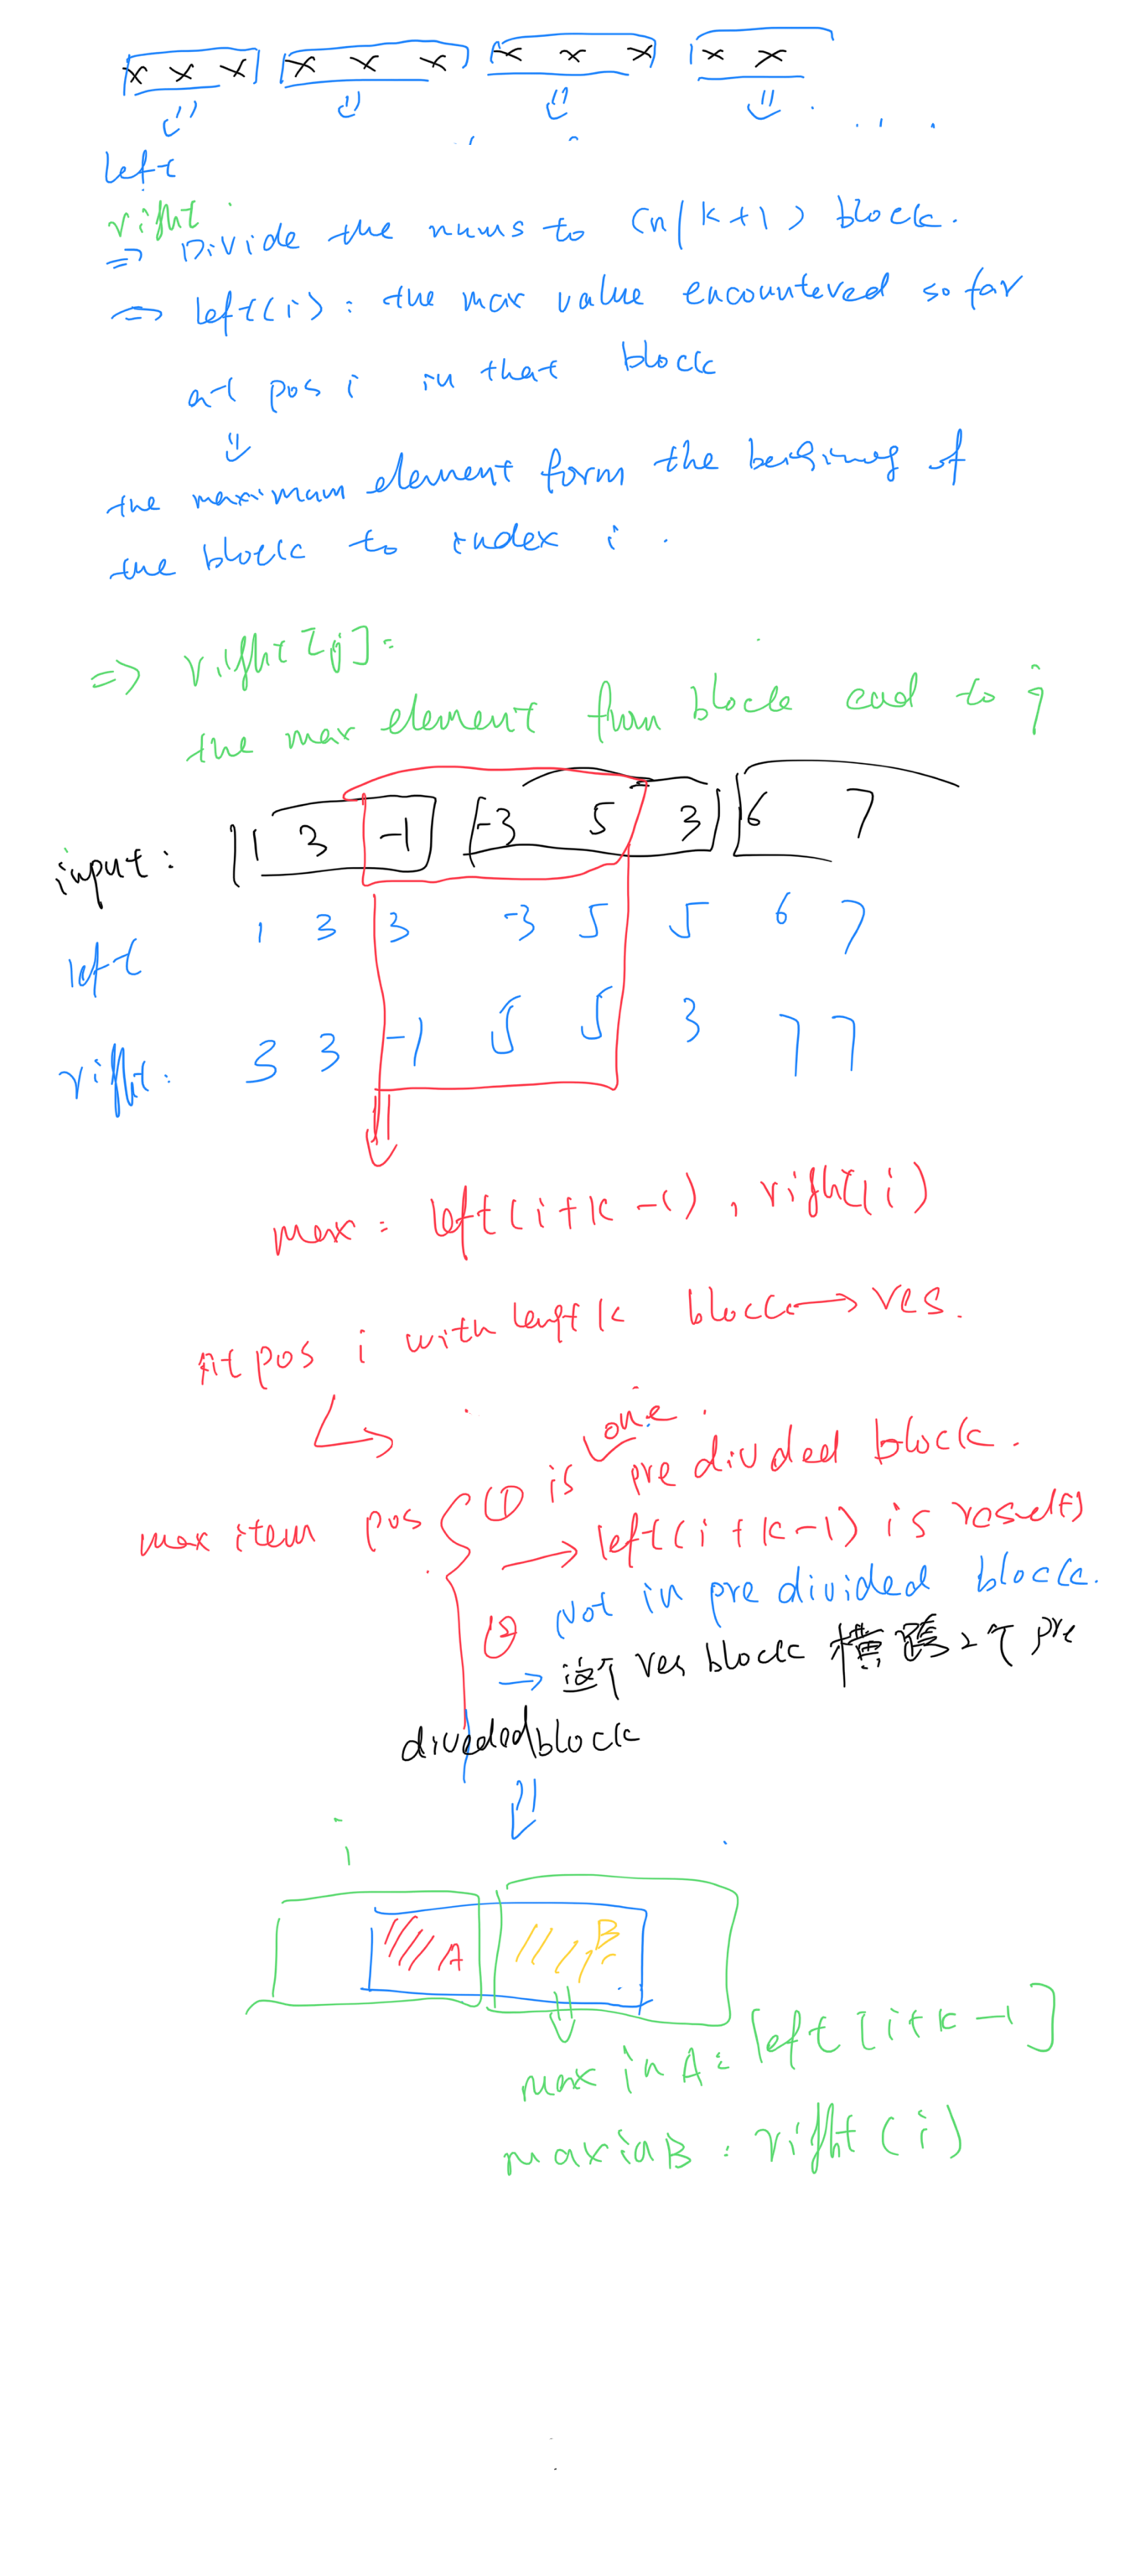 x x x x x x x x x x x
left
right
=> Divide the nums to (n/k+1) block.
=> left(i): the max value encountered so far
at pos i in that block
the maximam element form the of
the block to index i.
=> right[j]:
the max element from block end to j
input: 1 3 -1 -3 5 3 6 7
left 1 3 3 -3 5 5 6 7
right: 3 3 -1 5 5 3 7 7
max = left(i+k-1), right(i)
At pos i with k block → res.
one
max item pos ① is pre divided block.
→ left(i+k-1) is
② Not in pre divided block.
→ 这个 res block 横跨2个 pre
divided block
i
A B
max in A: left[i+k-1]
max in B: right(i)